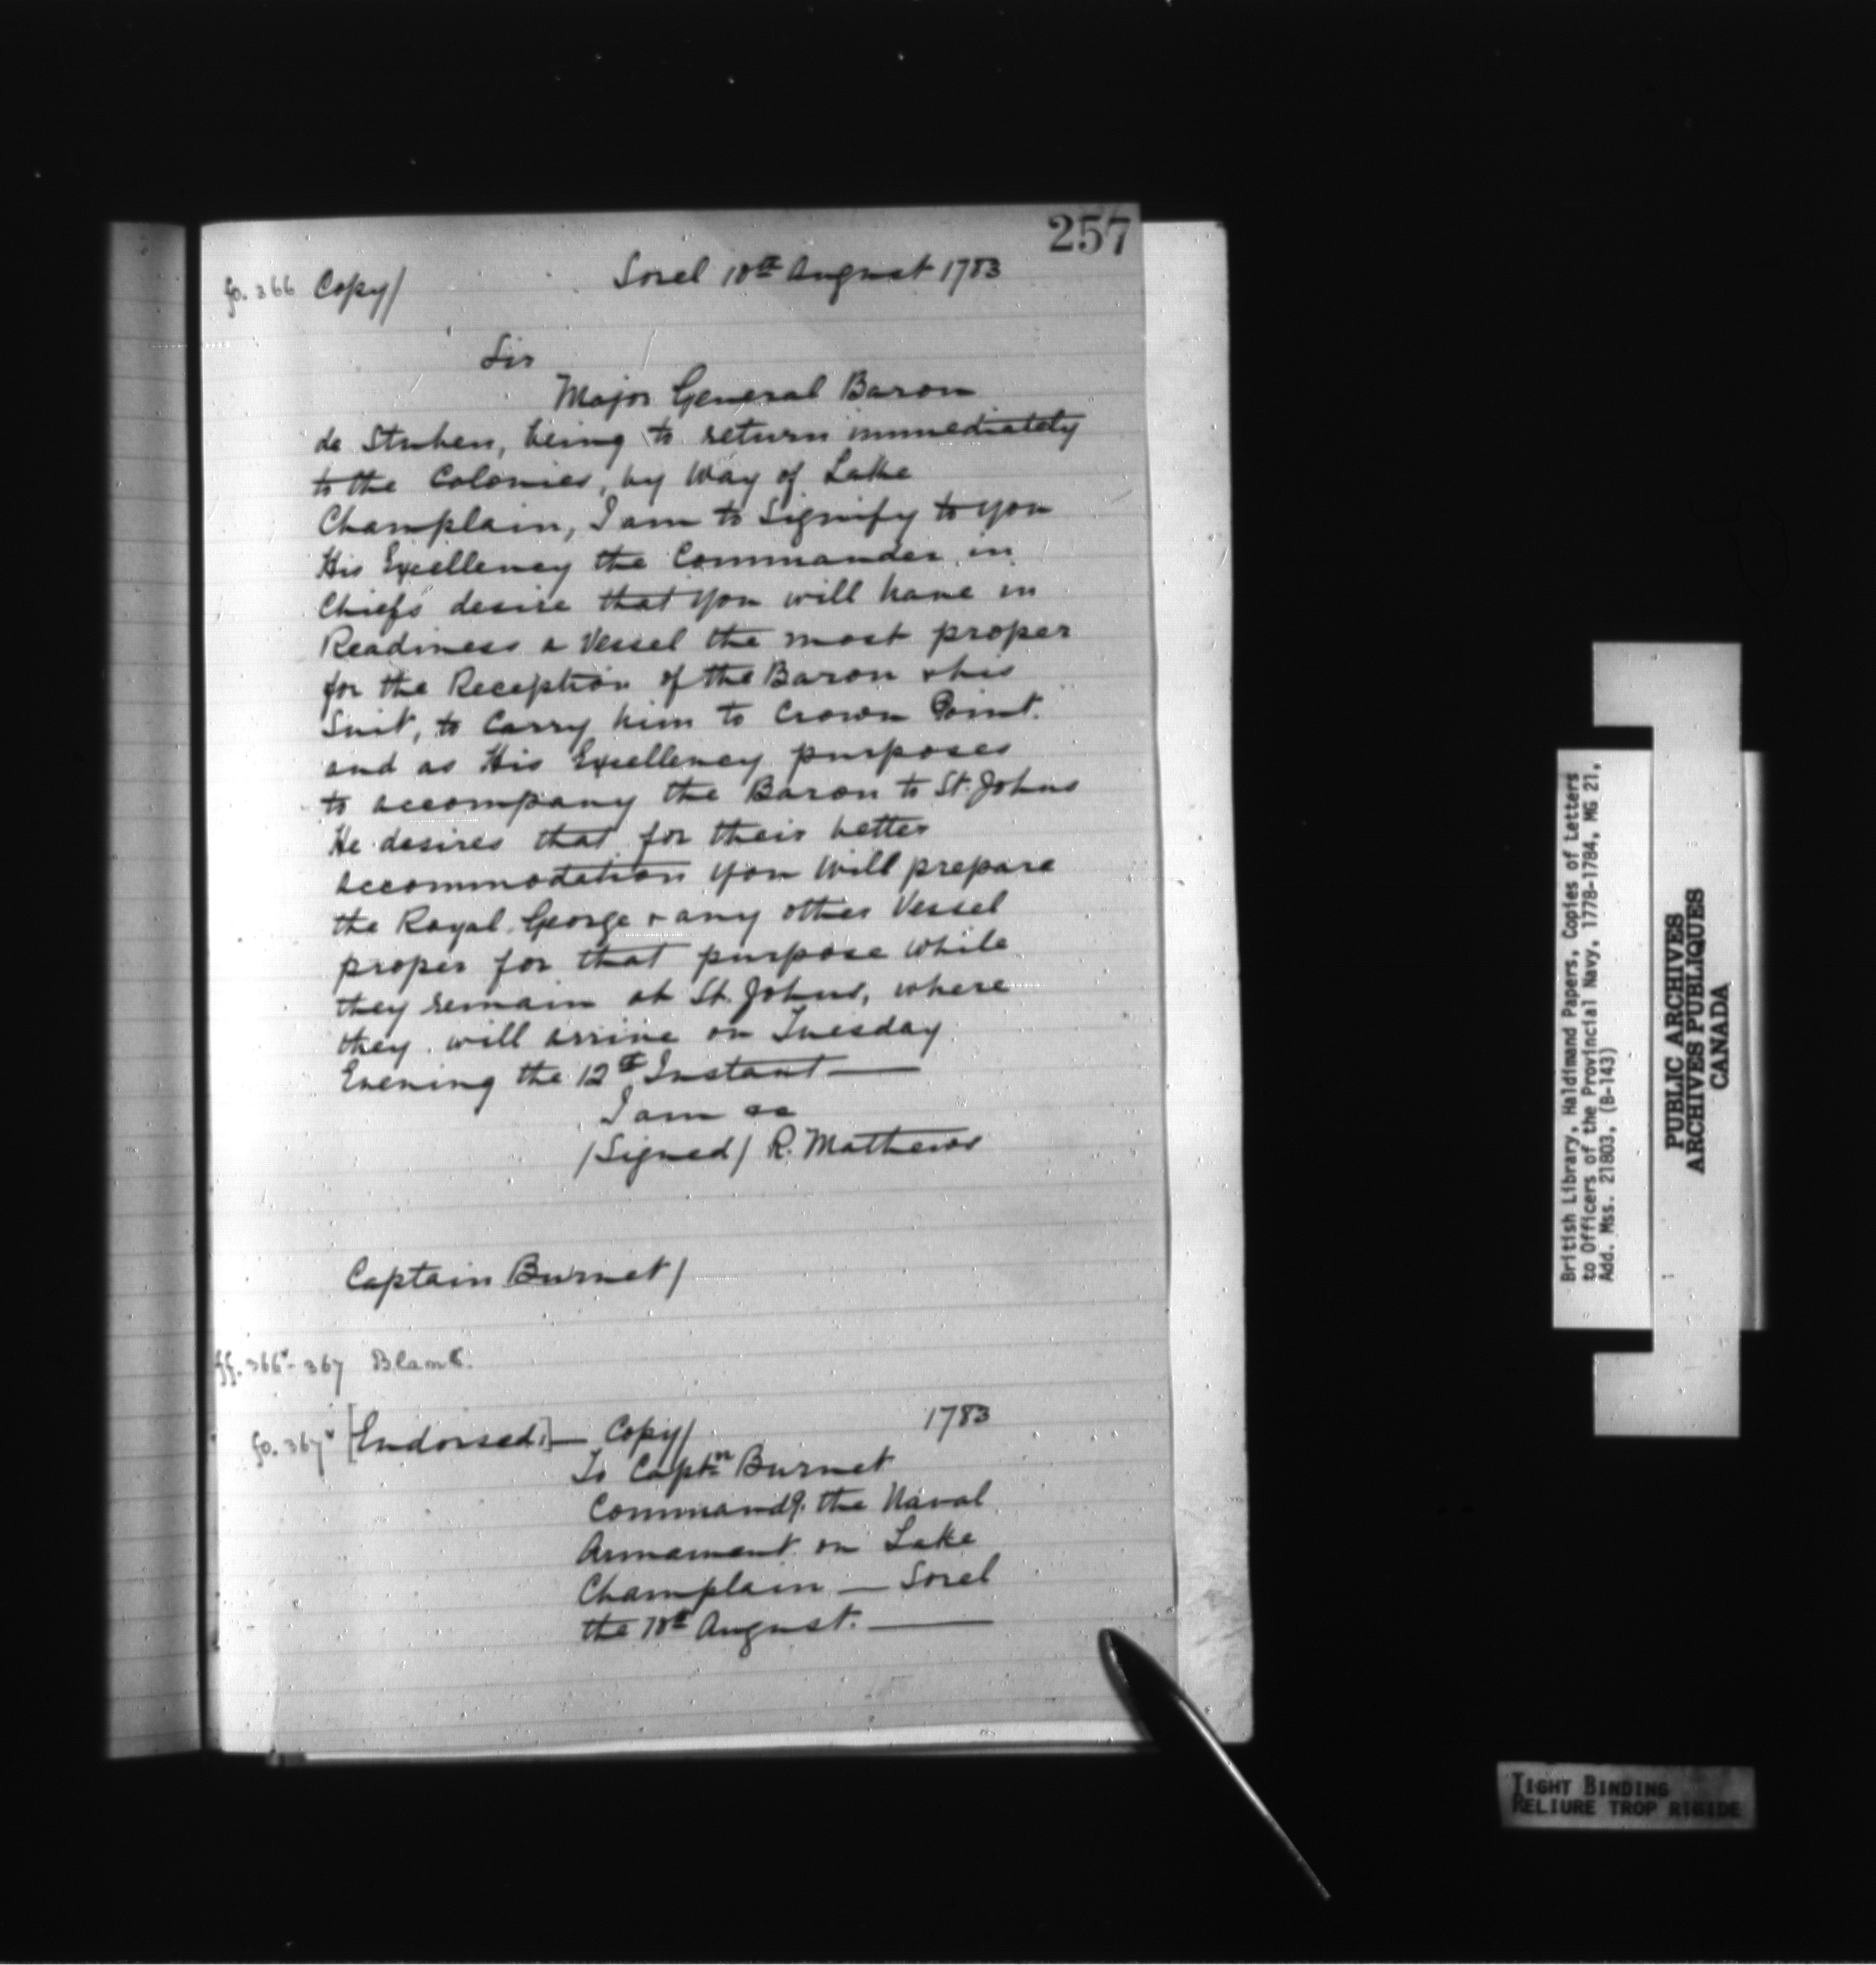 257
fo. 366 Copy/ Sorel 10th August 1783
Sir
Major General Baron
de Stuben, being to return immediately
to the Colonies, by Way of Lake
Champlain, I am to Signify to you
His Excellency the Commander in
Chiefs desire that you will have in
Readiness a Vessel the most proper
for the Reception of the Baron & his
Suit, to Carry him to Crown Point.
and as His Excellency purposes
to accompany the Baron to St. Johns
He desires that for their better
accommodation you will prepare
the Royal George & any other Vessel
proper for that purpose while
they remain at St. Johns, where
they will arrive on Tuesday
Evening the 12th Instant —
I am &c
/Signed/ R. Mathews
Captain Burnet/
ff. 366v - 367 Blank.
fo. 367v [Endorsed,] — Copy/ 1783
To Captn Burnet
Commandg. the Naval
Armament on Lake
Champlain — Sorel
the 10th August. —
British Library, Haldimand Papers, Copies of Letters
to Officers of the Provincial Navy, 1778-1784, MG 21,
Add. Mss. 21803, (B-143)
PUBLIC ARCHIVES
ARCHIVES PUBLIQUES
CANADA
TIGHT BINDING
RELIURE TROP RIGIDE